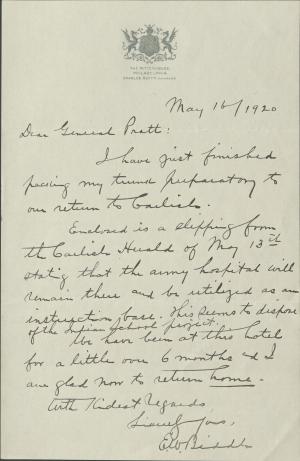 THE RITTENHOUSE
PHILADELPHIA
CHARLES DUFFY MANAGER
May 16/1920
Dear General Pratt:
I have just finished
packing my trunk preparatory to
our return to Carlisle.
Enclosed is a clipping from
the Carlisle Herald of May 13th
stating that the army hospital will
remain there and be utilized as an
instruction base. This seems to dispose
of the Indian School project.
We have been at this hotel
for a little over 6 months and I
am glad now to return home.
With Kindest Regards,
Sincerely Yours,
E.W. Biddle